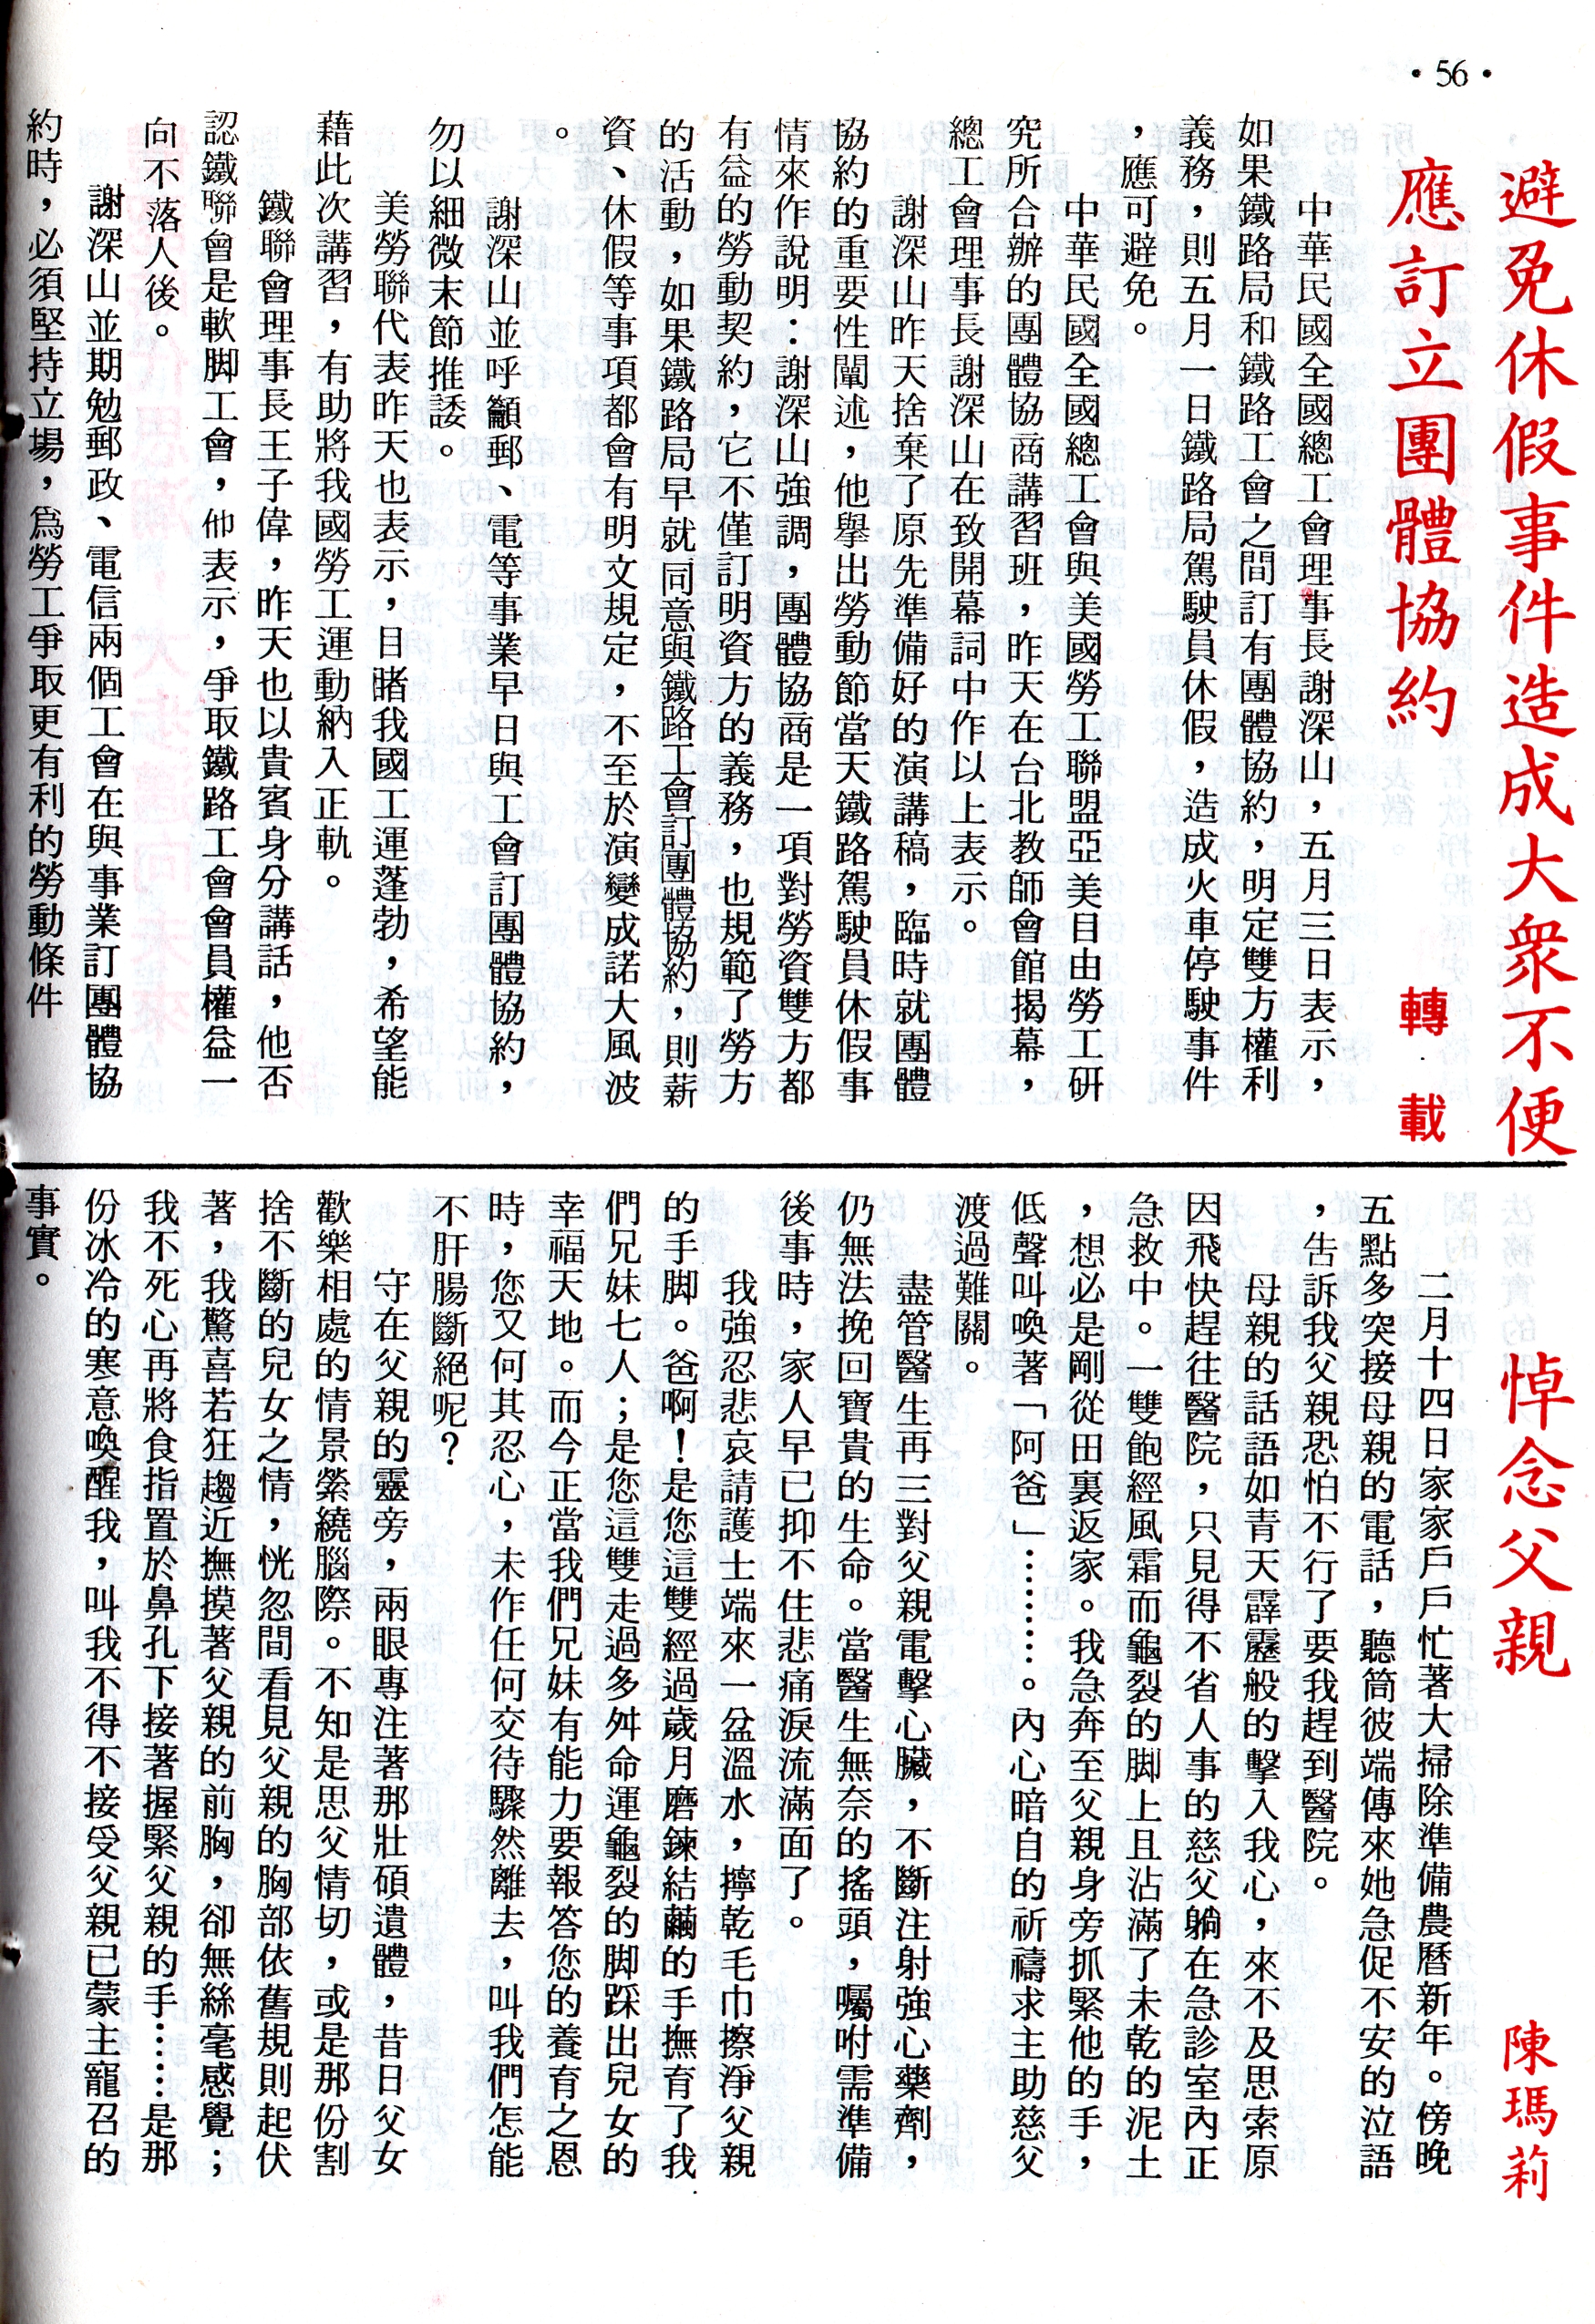 •56•
避免休假事件造成大衆不便
應訂立團體協約
轉載
中華民國全國總工會理事長謝深山，五月三日表示，
如果鐵路局和鐵路工會之間訂有團體協約，明定雙方權利
義務，則五月一日鐵路局駕駛員休假，造成火車停駛事件
，應可避免。
中華民國全國總工會與美國勞工聯盟亞美自由勞工研
究所合辦的團體協商講習班，昨天在台北教師會館揭幕，
總工會理事長謝深山在致開幕詞中作以上表示。
謝深山昨天捨棄了原先準備好的演講稿，臨時就團體
協約的重要性闡述，他舉出勞動節當天鐵路駕駛員休假事
情來作說明：謝深山強調，團體協商是一項對勞資雙方都
有益的勞動契約，它不僅訂明資方的義務，也規範了勞方
的活動，如果鐵路局早就同意與鐵路工會訂團體協約，則薪
資、休假等事項都會有明文規定，不至於演變成諾大風波
。
謝深山並呼籲郵、電等事業早日與工會訂團體協約，
勿以細微末節推諉。
美勞聯代表昨天也表示，目睹我國工運蓬勃，希望能
藉此次講習，有助將我國勞工運動納入正軌。
鐵聯會理事長王子偉，昨天也以貴賓身分講話，他否
認鐵聯會是軟脚工會，他表示，爭取鐵路工會會員權益一
向不落人後。
謝深山並期勉郵政、電信兩個工會在與事業訂團體協
約時，必須堅持立場，爲勞工爭取更有利的勞動條件
悼念父親
陳瑪莉
二月十四日家家戶戶忙著大掃除準備農曆新年。傍晚
五點多突接母親的電話，聽筒彼端傳來她急促不安的泣語
，告訴我父親恐怕不行了要我趕到醫院。
母親的話語如青天霹靂般的擊入我心，來不及思索原
因飛快趕往醫院，只見得不省人事的慈父躺在急診室內正
急救中。一雙飽經風霜而龜裂的脚上且沾滿了未乾的泥土
，想必是剛從田裏返家。我急奔至父親身旁抓緊他的手，
低聲叫喚著「阿爸」………。內心暗自的祈禱求主助慈父
渡過難關。
盡管醫生再三對父親電擊心臟，不斷注射強心藥劑，
仍無法挽回寶貴的生命。當醫生無奈的搖頭，囑咐需準備
後事時，家人早已抑不住悲痛淚流滿面了。
我強忍悲哀請護士端來一盆溫水，擰乾毛巾擦淨父親
的手脚。爸啊！是您這雙經過歲月磨鍊結繭的手撫育了我
們兄妹七人；是您這雙走過多舛命運龜裂的脚踩出兒女的
幸福天地。而今正當我們兄妹有能力要報答您的養育之恩
時，您又何其忍心，未作任何交待驟然離去，叫我們怎能
不肝腸斷絕呢？
守在父親的靈旁，兩眼專注著那壯碩遺體，昔日父女
歡樂相處的情景縈繞腦際。不知是思父情切，或是那份割
捨不斷的兒女之情，恍忽間看見父親的胸部依舊規則起伏
著，我驚喜若狂趨近撫摸著父親的前胸，卻無絲毫感覺；
我不死心再將食指置於鼻孔下接著握緊父親的手……是那
份冰冷的寒意喚醒我，叫我不得不接受父親已蒙主寵召的
事實。